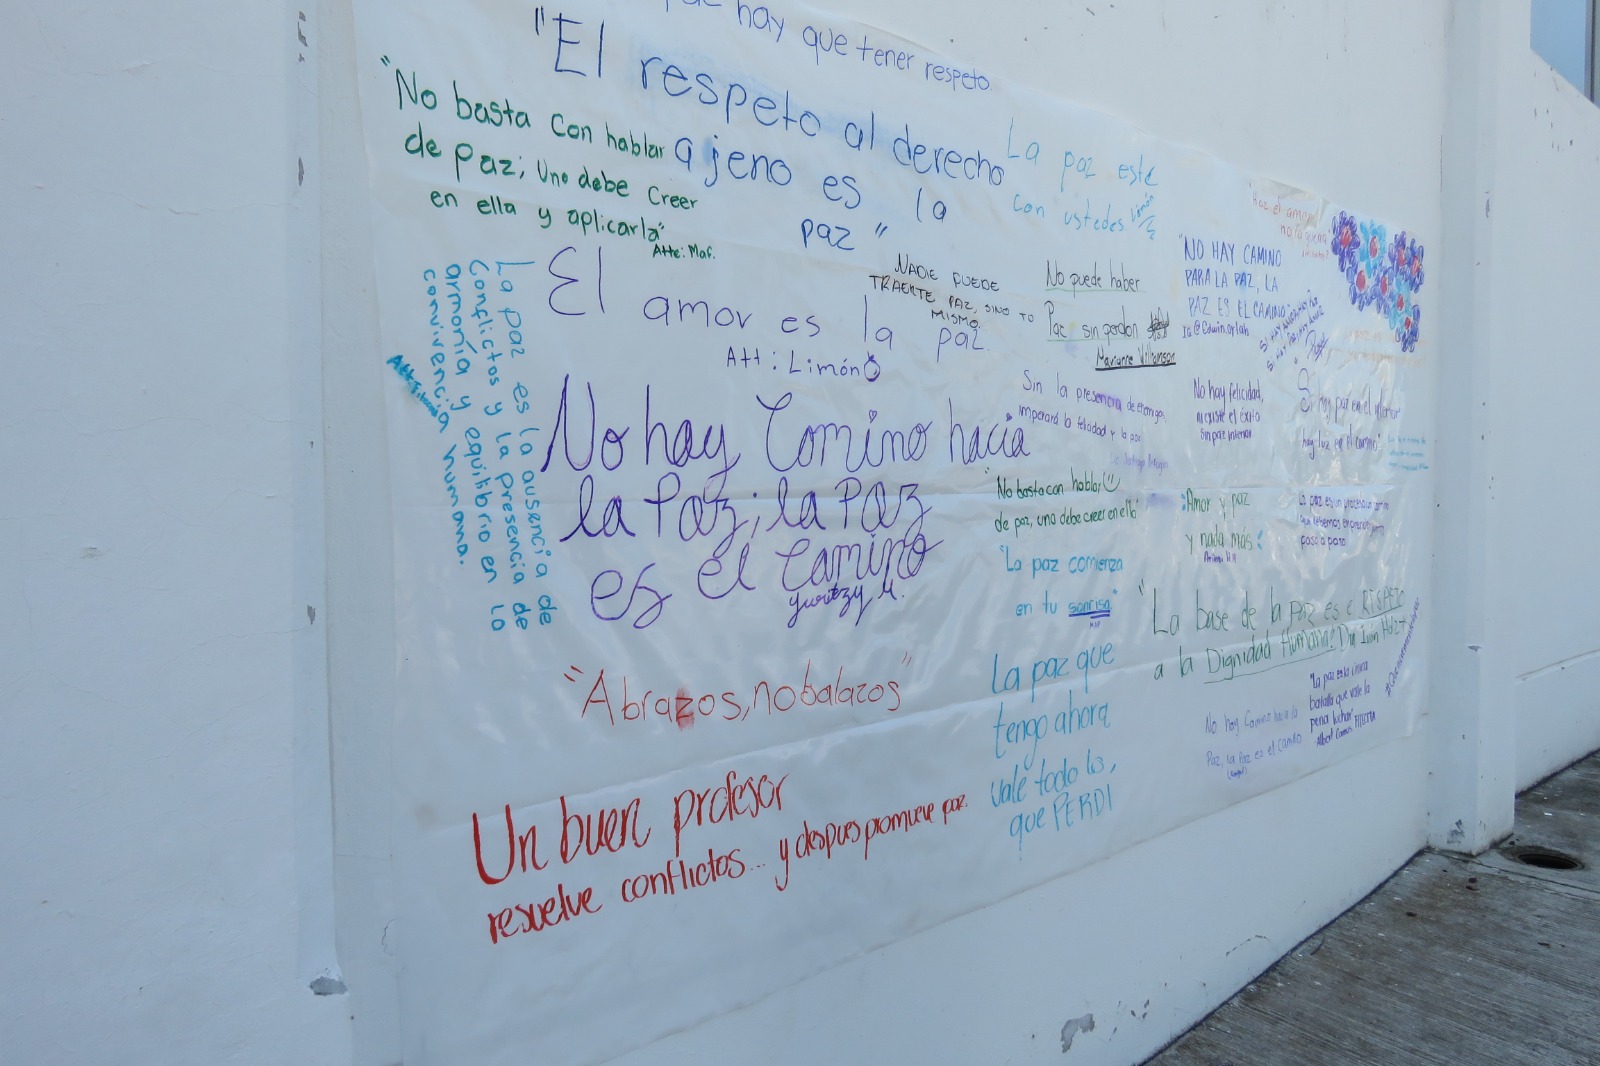 hay que tener respeto.
"El respeto al derecho
ajeno es la
paz"
"No basta con hablar
de paz; Uno debe creer
en ella y aplicarla"
Atte: Maf.
La paz esté
con ustedes
El amor es la paz.
Att: Limón
NADIE PUEDE
TRAERTE PAZ, SINO TÚ
MISMO.
No puede haber
Paz sin perdon
Marianne Williamson
"NO HAY CAMINO
PARA LA PAZ, LA
PAZ ES EL CAMINO
La paz es la ausencia de
conflictos y la presencia de
armonía y equilibrio en la
convivencia humana.
No hay Camino hacia
la Paz; la PAZ
es el Camino
Yuritzy M.
Sin la presencia de
imperará la felicidad y la paz
No hay felicidad,
ni existe el éxito
sin paz interior
Si hay paz en el interior
hay luz en el camino"
"No basta con hablar
de paz, uno debe creer en ella"
Amor y paz
y nada más
"La paz comienza
en tu sonrisa"
"La base de la paz es el RESPETO
a la Dignidad Humana"
"Abrazos, no balazos"
La paz que
tengo ahora
vale todo lo,
que PERDI
"La paz es la única
batalla que vale la
pena luchar"
Albert Camus
No hay Camino hacia la
Paz, la Paz es el camino
Un buen profesor
resuelve conflictos... y despues promueve paz.